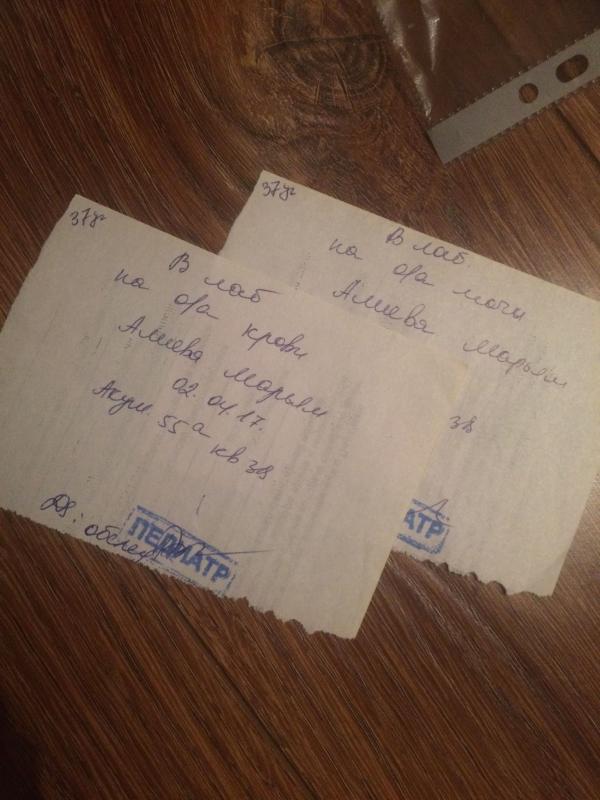 37уч
В лаб
на о/а крови
Алиева Марьям
02.04.17.
Акуш. 55а
кв 38
Ds: обслед
ПЕДИАТР
37уч
В лаб.
на о/а мочи
Алиева Марьям
38
АТР